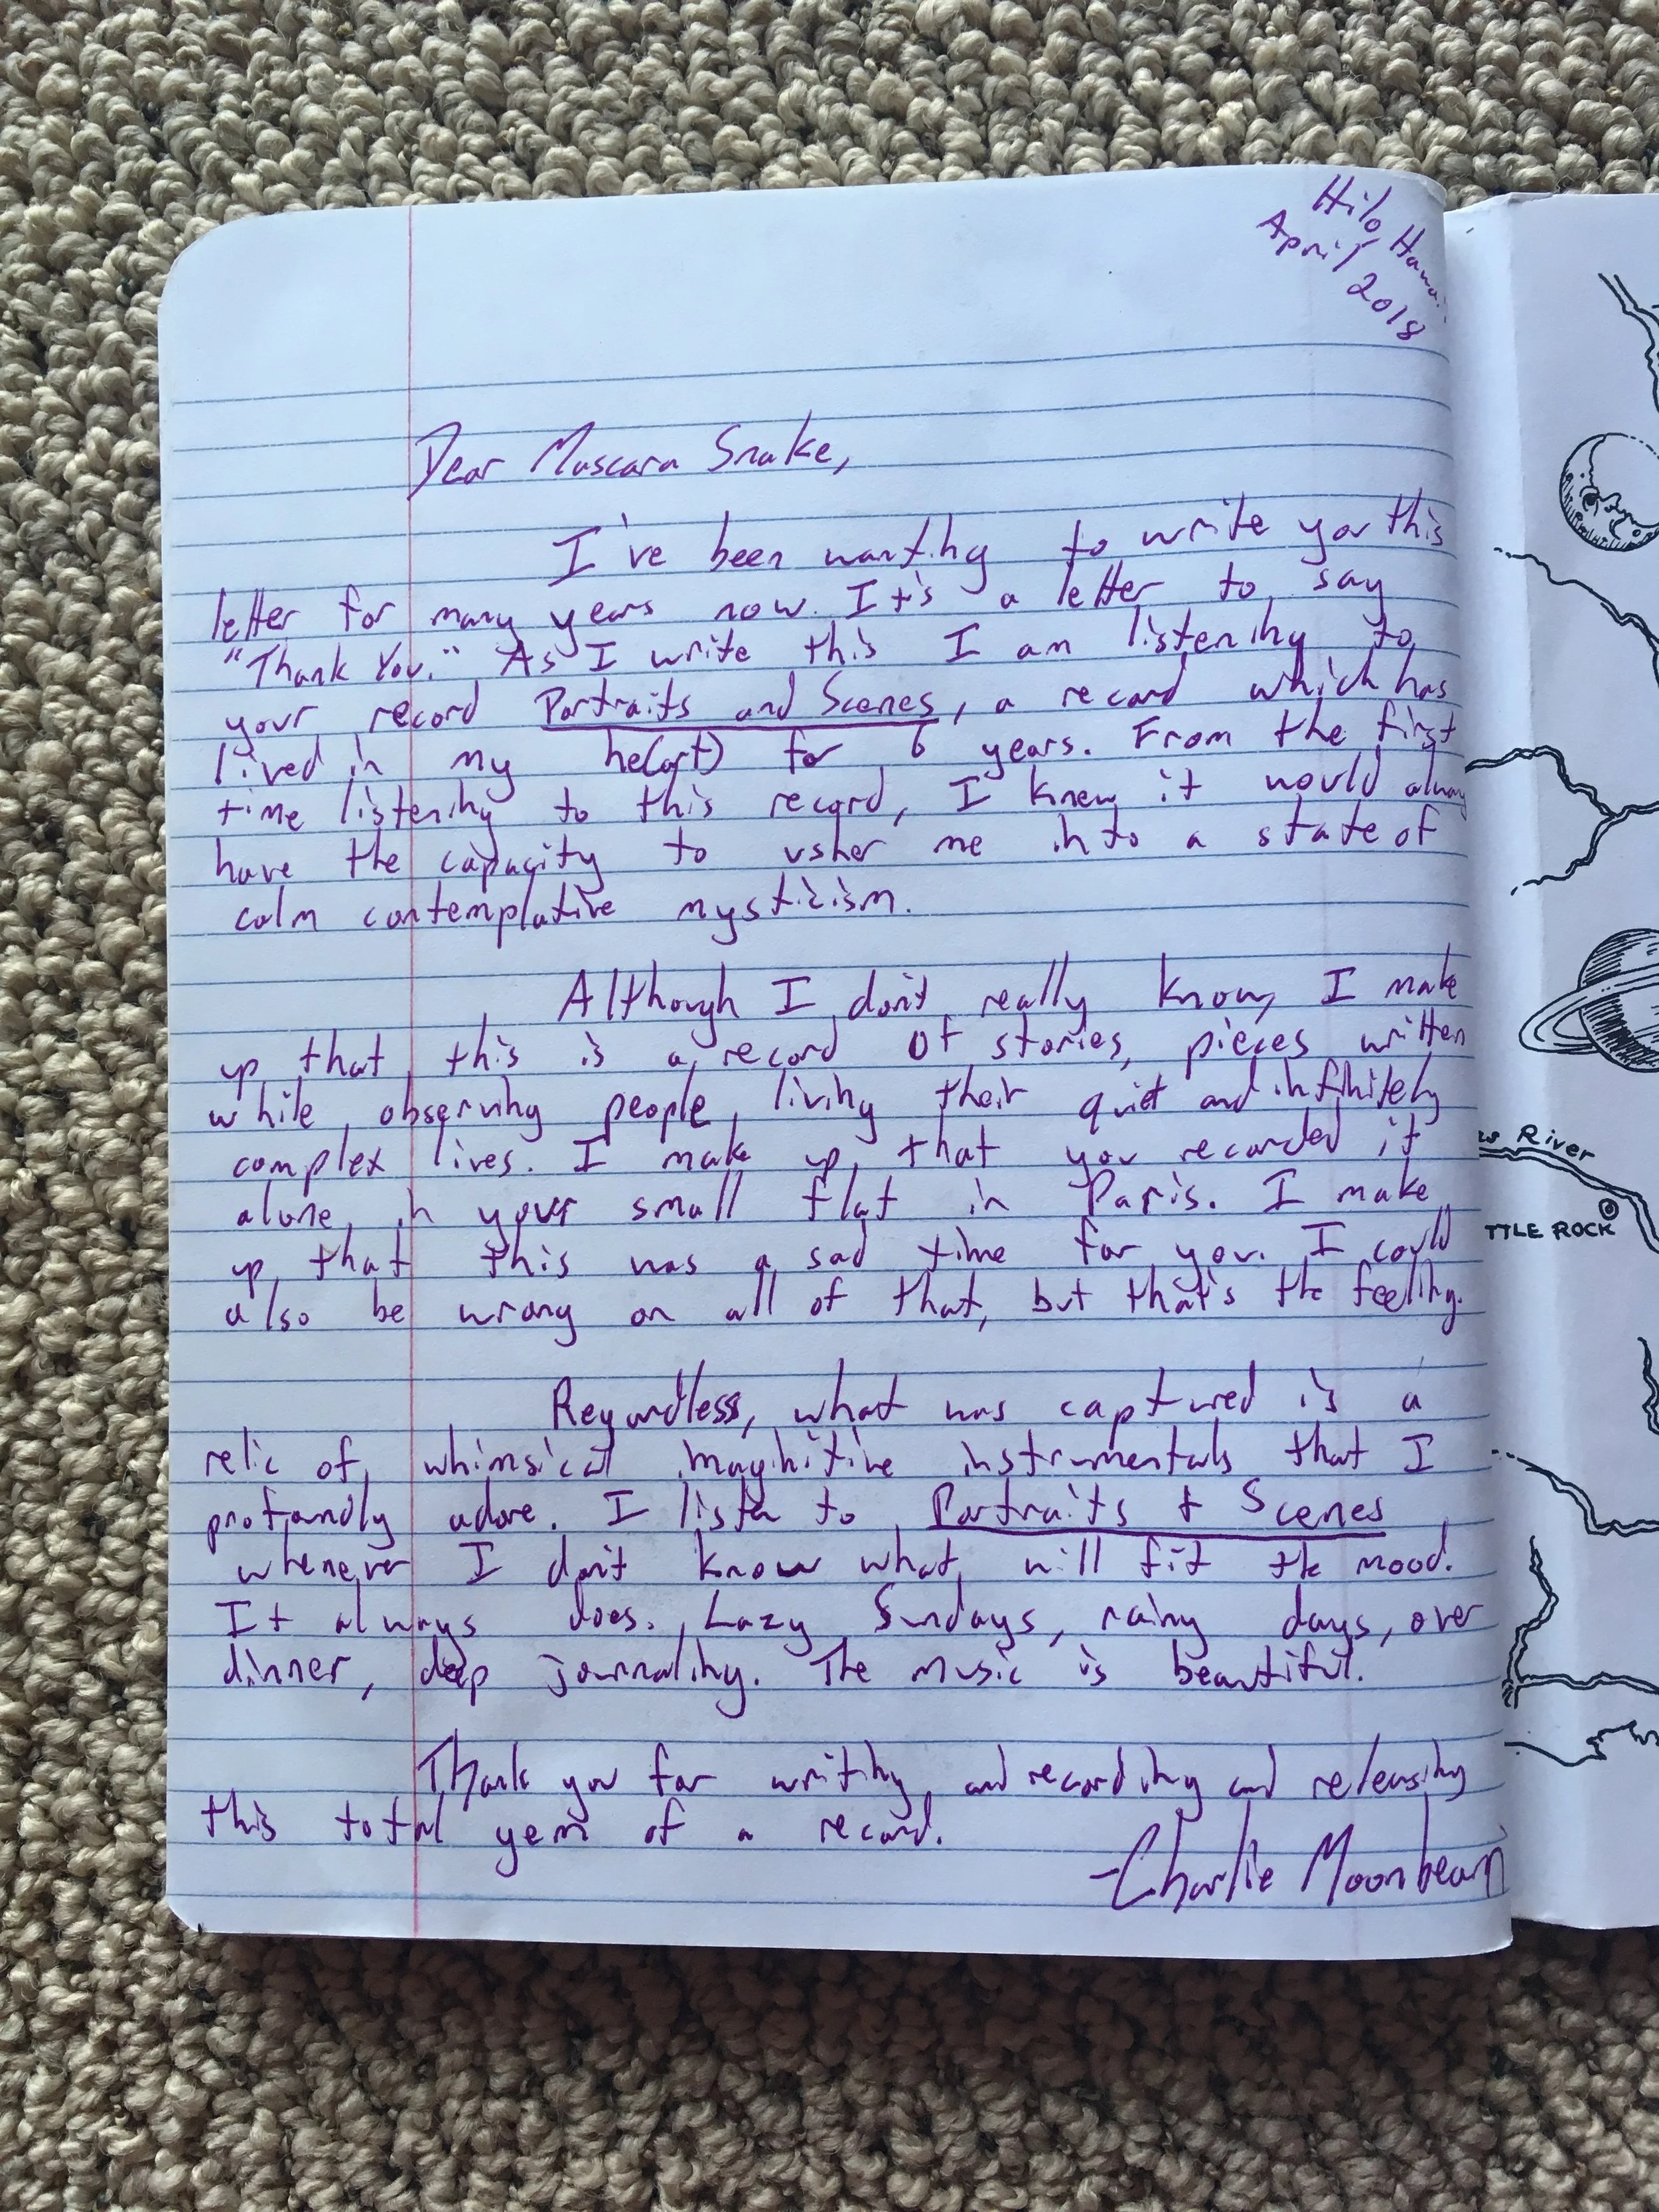 Hilo, Hawai
April 2018
Dear Mascara Snake,
I've been wanting to write you this
letter for many years now. It's a letter to say
"Thank You." As I write this I am listening to
your record Portraits and Scenes, a record which has
lived in my he(art) for 6 years. From the first
time listening to this record, I knew it would alway
have the capacity to usher me into a state of
calm contemplative mysticism.
Although I don't really know, I make
up that this is a record of stories, pieces written
while observing people living their quiet and infinitely
complex lives. I make up that you recorded it
alone in your small flat in Paris. I make
up that this was a sad time for you. I could
also be wrong on all of that, but that's the feeling.
Regardless, what was captured is a
relic of whimsical imaginitive instrumentals that I
profoundly adore. I listen to Portraits + Scenes
whenever I don't know what will fit the mood.
It always does. Lazy Sundays, rainy days, over
dinner, deep journaling. The music is beautiful.
Thank you for writing and recording and releasing
this total gem of a record.
-Charlie Moonbeam
as River
TTLE ROCK